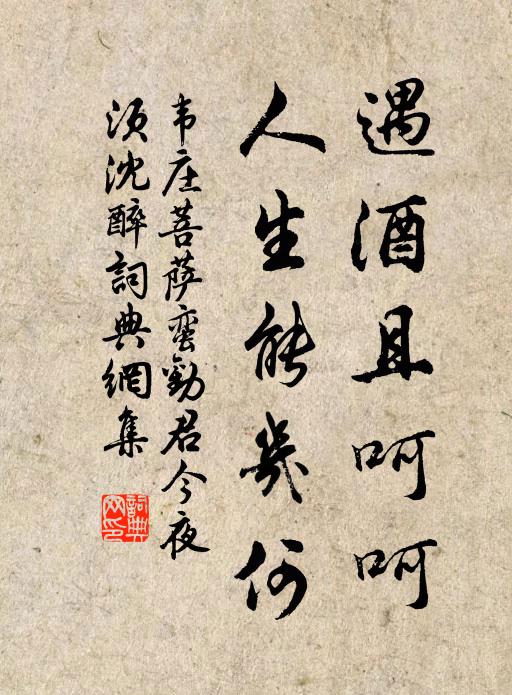 遇酒且呵呵
人生能幾何
韦庄菩萨蛮勸君今夜
須沈醉詞典網集
詞典网印